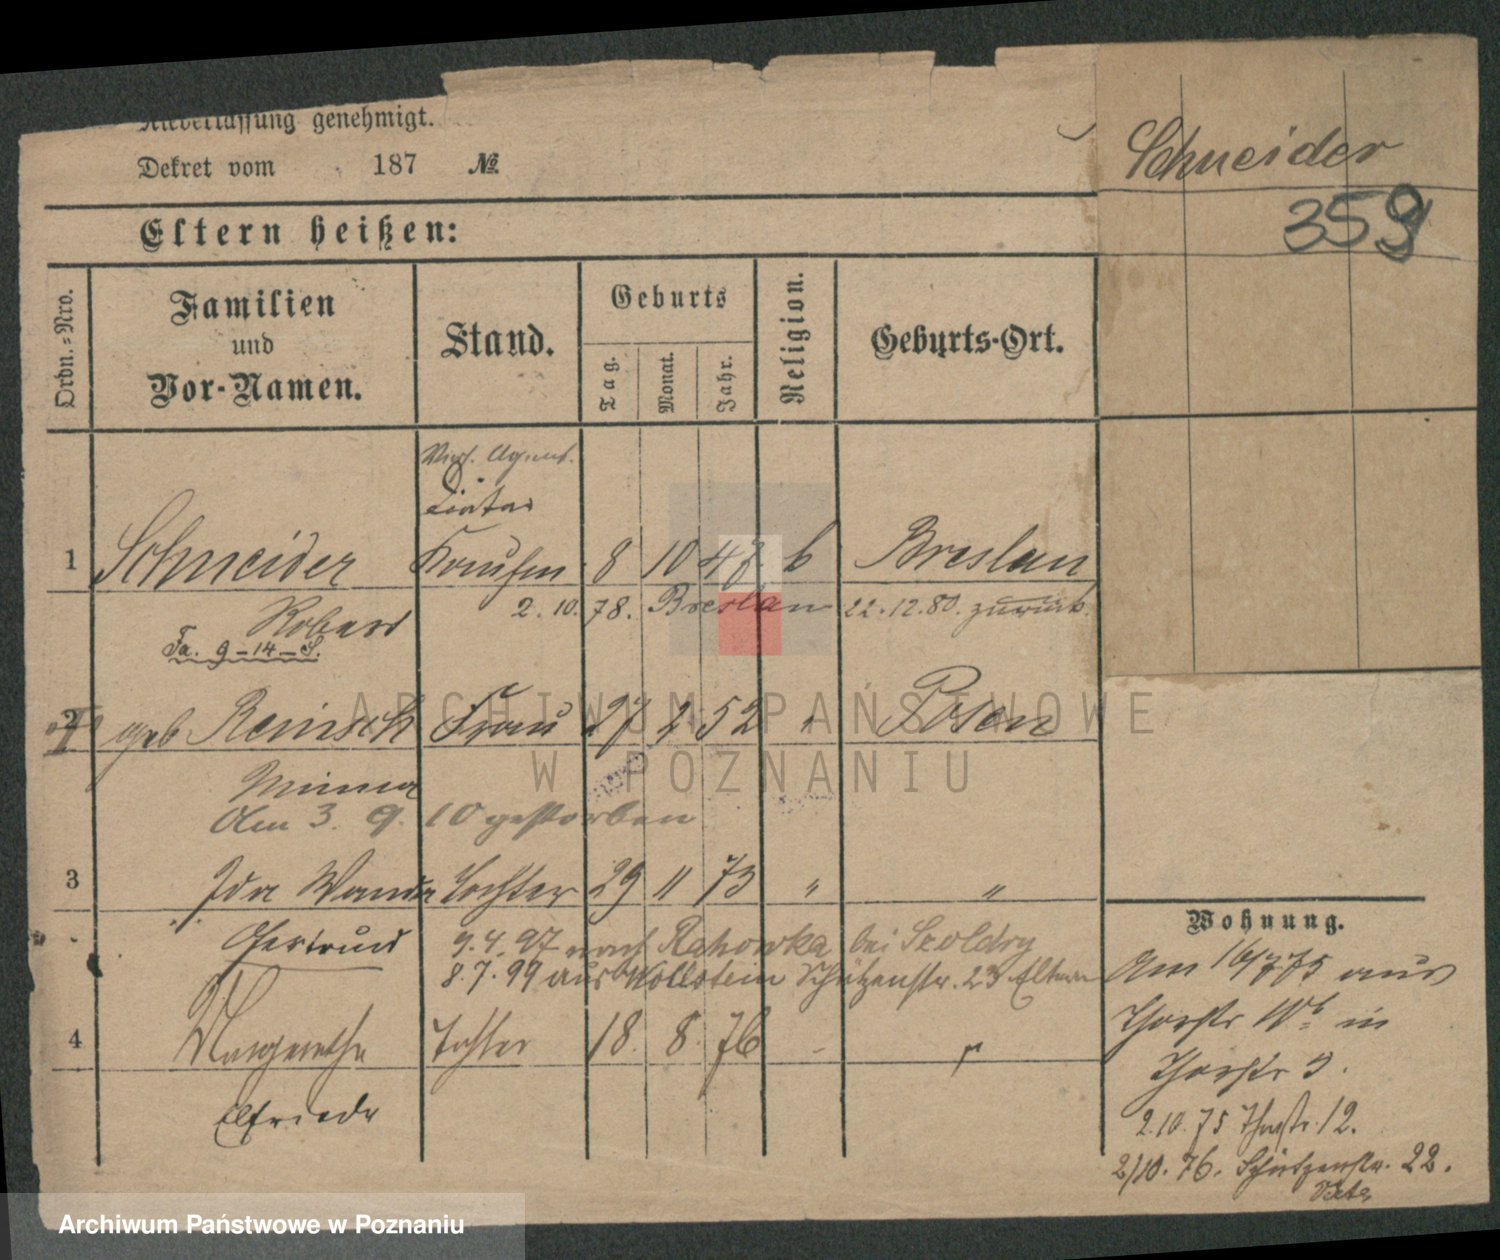 Niederlassung genehmigt.
Dekret vom 187 №
Schneider
359
Eltern heißen:
Ordn.-Nro.
Familien
und
Vor-Namen.
Stand.
Geburts
Tag.
Monat.
Jahr.
Religion.
Geburts-Ort.
1 Schneider 8 10 47 Breslau
2. 10. 78. Breslau 22.12.80. zurück.
Robert
Fa. 9-14-S.
2 geb Reinsch Frau 27 2 52 " Posen
Minna
Am 3. 9. 10 gestorben
3 Ida Wanda Tochter 29 11 73 " "
Gertrud 9.4.97 nach Rahowka bei Scoldry
8.7.99 aus Wollstein Schützenstr. 23 Eltern
4 Margarethe Tochter 18. 8. 76
Elfriede
Wohnung.
Am 16/7 75 aus
Thorstr in
Thorstr
2.10.75 Thorstr. 12.
2/10. 76. Schützenstr. 22.
ARCHIWUM PAŃSTWOWE
W POZNANIU
Archiwum Państwowe w Poznaniu